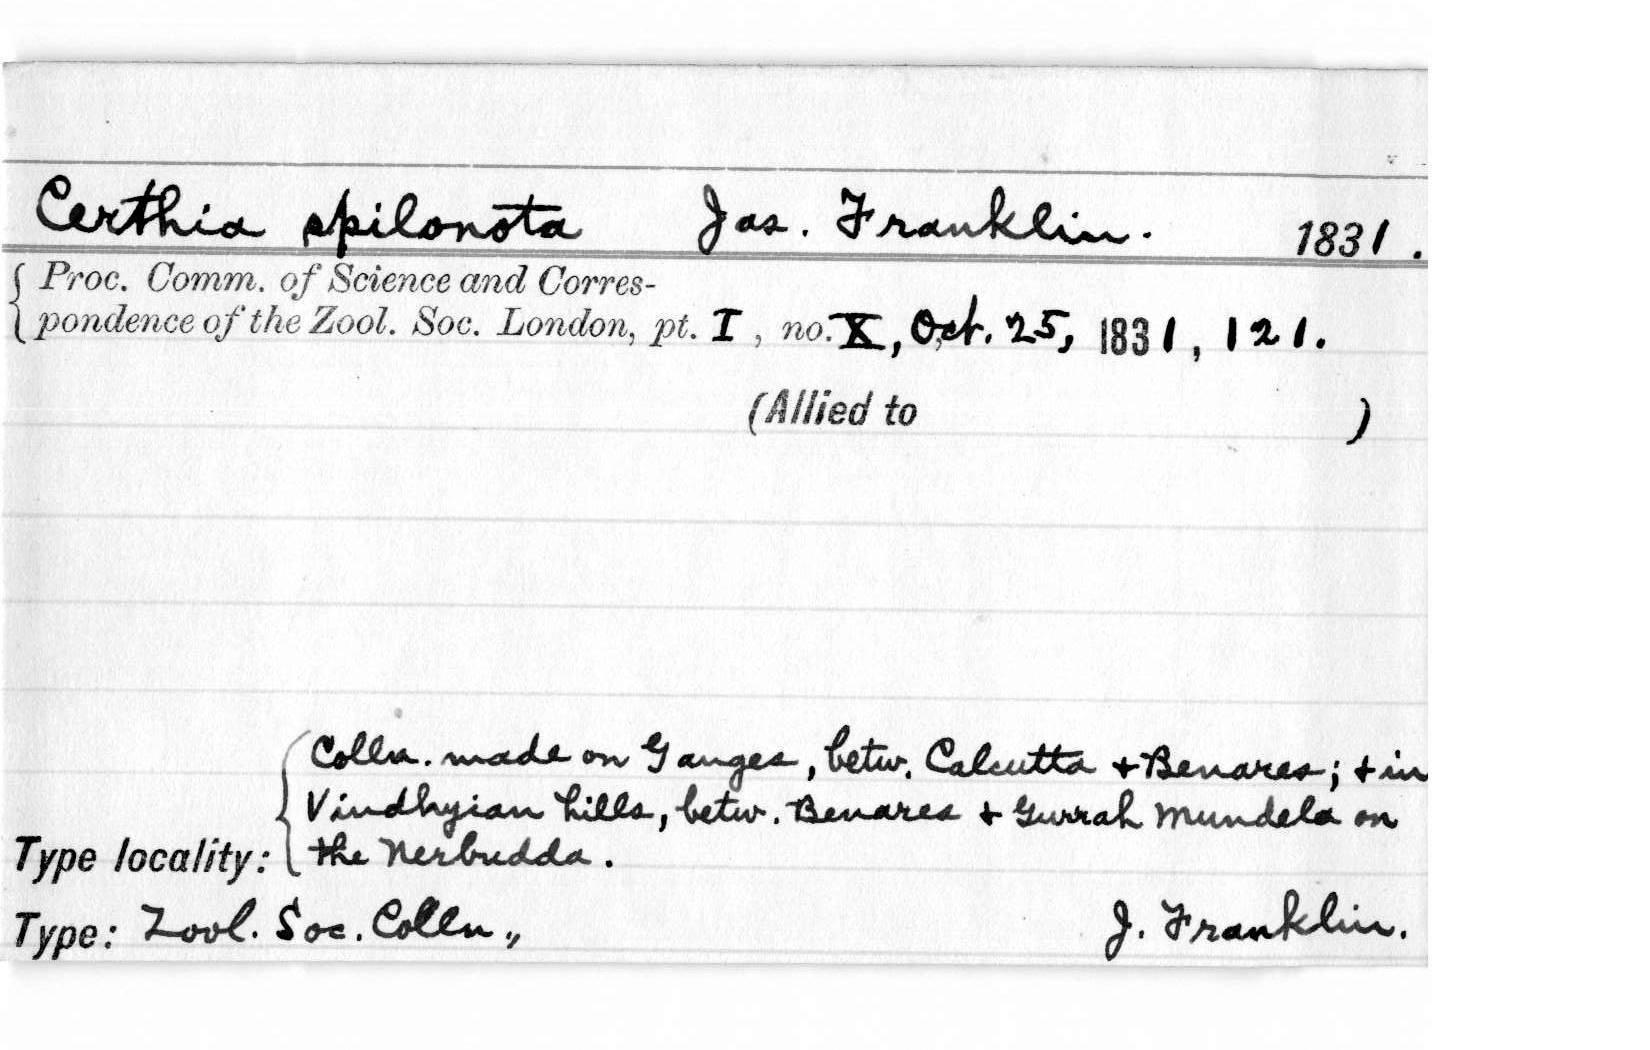 Certhia spilonota Jas. Franklin. 1831.
Proc. Comm. of Science and Corres-
pondence of the Zool. Soc. London, pt. I, no. X, Oct. 25, 1831, 121.
(Allied to )
Colln. made on Ganges, betw. Calcutta + Benares; + in
Vindhyian hills, betw. Benares + Gurrah Mundela on
Type locality: the Nerbudda.
Type: Zool. Soc. Colln., J. Franklin.